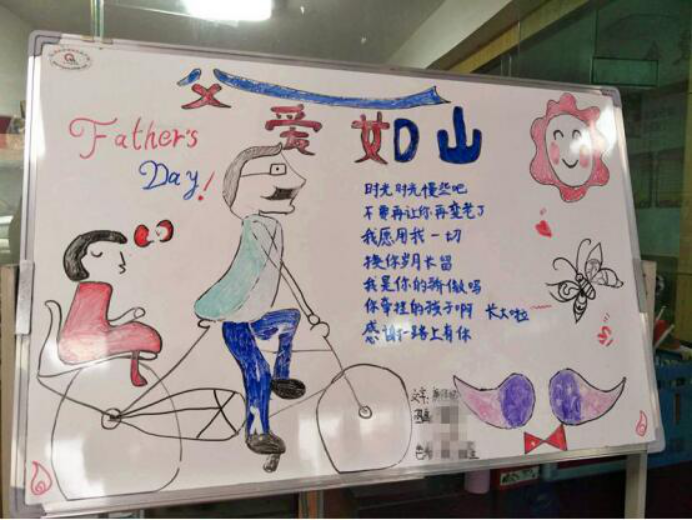 父爱如山
Father's
Day!
时光时光慢些吧
不要再让你再变老了
我愿用我一切
换你岁月长留
我是你的骄傲吗
你牵挂的孩子啊 长大啦
感谢一路上有你
文字: